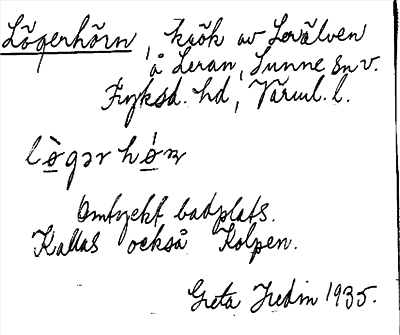 Lögerhörn, krök av Lerälven
å Leran, Sunne sn v.
Fryksd. hd, Värml. l.
lò̱gər hó̱rn
Omtyckt badplats.
Kallas också Kolpen.
Greta Hedin 1935.